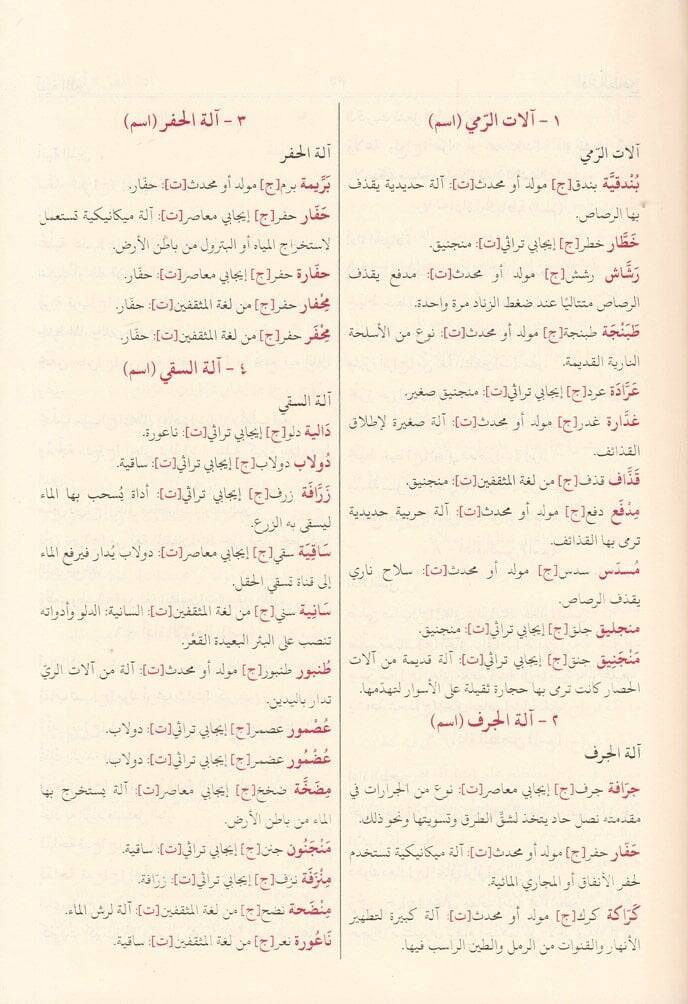 ١ - آلات الرّمي (اسم)
آلات الرّمي
بُندقيَّة بندق[ج] مولد أو محدث[ت]: آلة حديدية يقذف
بها الرصاص.
خَطَّار خطر[ج] إيجابي تراثي[ت]: منجنيق.
رَشَّاش رشش[ج] مولد أو محدث[ت]: مدفع يقذف
الرصاص متتاليًا عند ضغط الزناد مرة واحدة.
طَبَنْجَة طبنجة[ج] مولد أو محدث[ت]: نوع من الأسلحة
النارية القديمة.
عَرَّادَة عرد[ج] إيجابي تراثي[ت]: منجنيق صغير.
غدَّارة غدر[ج] مولد أو محدث[ت]: آلة صغيرة لإطلاق
القذائف.
قَذَّاف قذف[ج] من لغة المثقفين[ت]: منجنيق.
مِدْفَع دفع[ج] مولد أو محدث[ت]: آلة حربية حديدية
ترمى بها القذائف.
مُسدّس سدس[ج] مولد أو محدث[ت]: سلاح ناري
يقذف الرصاص.
منجليق جلق[ج] إيجابي تراثي[ت]: منجنيق.
مَنْجَنِيق جنق[ج] إيجابي تراثي[ت]: آلة قديمة من آلات
الحصار كانت ترمى بها حجارة ثقيلة على الأسوار لتهدّمها.
٢ - آلة الجرف (اسم)
آلة الجرف
جرّافة جرف[ج] إيجابي معاصر[ت]: نوع من الجرارات في
مقدمته نصل حاد يتخذ لشقِّ الطرق وتسويتها ونحو ذلك.
حَفَار حفر[ج] مولد أو محدث[ت]: آلة ميكانيكية تستخدم
لحفر الأنفاق أو المجاري المائية.
كَرَاكة كرك[ج] مولد أو محدث[ت]: آلة كبيرة لتطهير
الأنهار والقنوات من الرمل والطين الراسب فيها.
٣ - آلة الحفر (اسم)
آلة الحفر
بَرِّيمة برم[ج] مولد أو محدث[ت]: حفّار.
حَفّار حفر[ج] إيجابي معاصر[ت]: آلة ميكانيكية تستعمل
لاستخراج المياه أو البترول من باطن الأرض.
حفّارة حفر[ج] إيجابي معاصر[ت]: حفّار.
مِحْفار حفر[ج] من لغة المثقفين[ت]: حفّار.
مِحْفَر حفر[ج] من لغة المثقفين[ت]: حفّار.
٤ - آلة السقي (اسم)
آلة السقي
دَالية دلو[ج] إيجابي تراثي[ت]: ناعورة.
دُولاب دولاب[ج] إيجابي تراثي[ت]: ساقية.
زَرَّافة زرف[ج] إيجابي تراثي[ت]: أداة يُسحب بها الماء
ليسقى به الزرع.
سَاقِيَة سقي[ج] إيجابي معاصر[ت]: دولاب يُدار فيرفع الماء
إلى قناة تسقي الحقل.
سَانِية سني[ج] من لغة المثقفين[ت]: السانية: الدلو وأدواته
تنصب على البئر البعيدة القَعْر.
طُنبور طنبور[ج] مولد أو محدث[ت]: آلة من آلات الريّ
تدار باليدين.
عُصْمور عصمر[ج] إيجابي تراثي[ت]: دولاب.
عُضْمُور عضمر[ج] إيجابي تراثي[ت]: دولاب.
مِضخَّة ضخخ[ج] إيجابي معاصر[ت]: آلة يستخرج بها
الماء من باطن الأرض.
مَنْجَنُون جنن[ج] إيجابي تراثي[ت]: ساقية.
مِنْزَفَة نزف[ج] إيجابي تراثي[ت]: زرّافة.
مِنْضَحة نضح[ج] من لغة المثقفين[ت]: آلة لرش الماء.
نَاعُورة نعر[ج] من لغة المثقفين[ت]: ساقية.